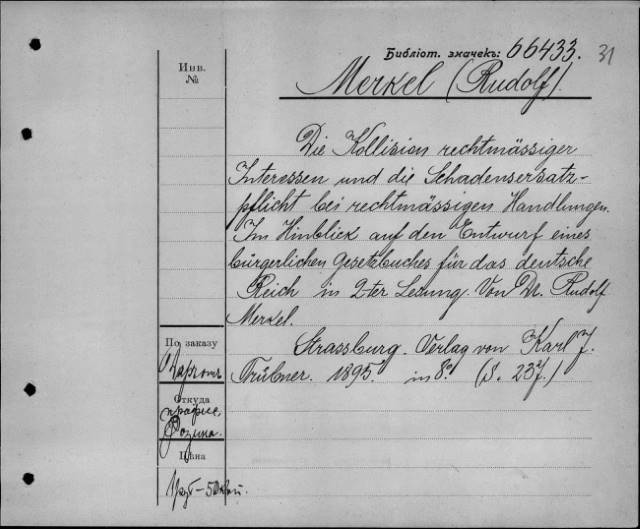 Библіот. значекъ: 66433. 31
Инв.
№
Merkel (Rudolf).
Die Kollision rechtmässiger
Interessen und die Schadensersatz-
pflicht bei rechtmässigen Handlungen.
Im Hinblick auf den Entwurf eines
bürgerlichen Gesetzbuches für das deutsche
Reich in 2ter Lesung. Von Dr. Rudolf
Merkel.
Strassburg. Verlag von Karl J.
Trübner. 1895. in 8º. (S. 237.)
По заказу
Откуда
Цѣна